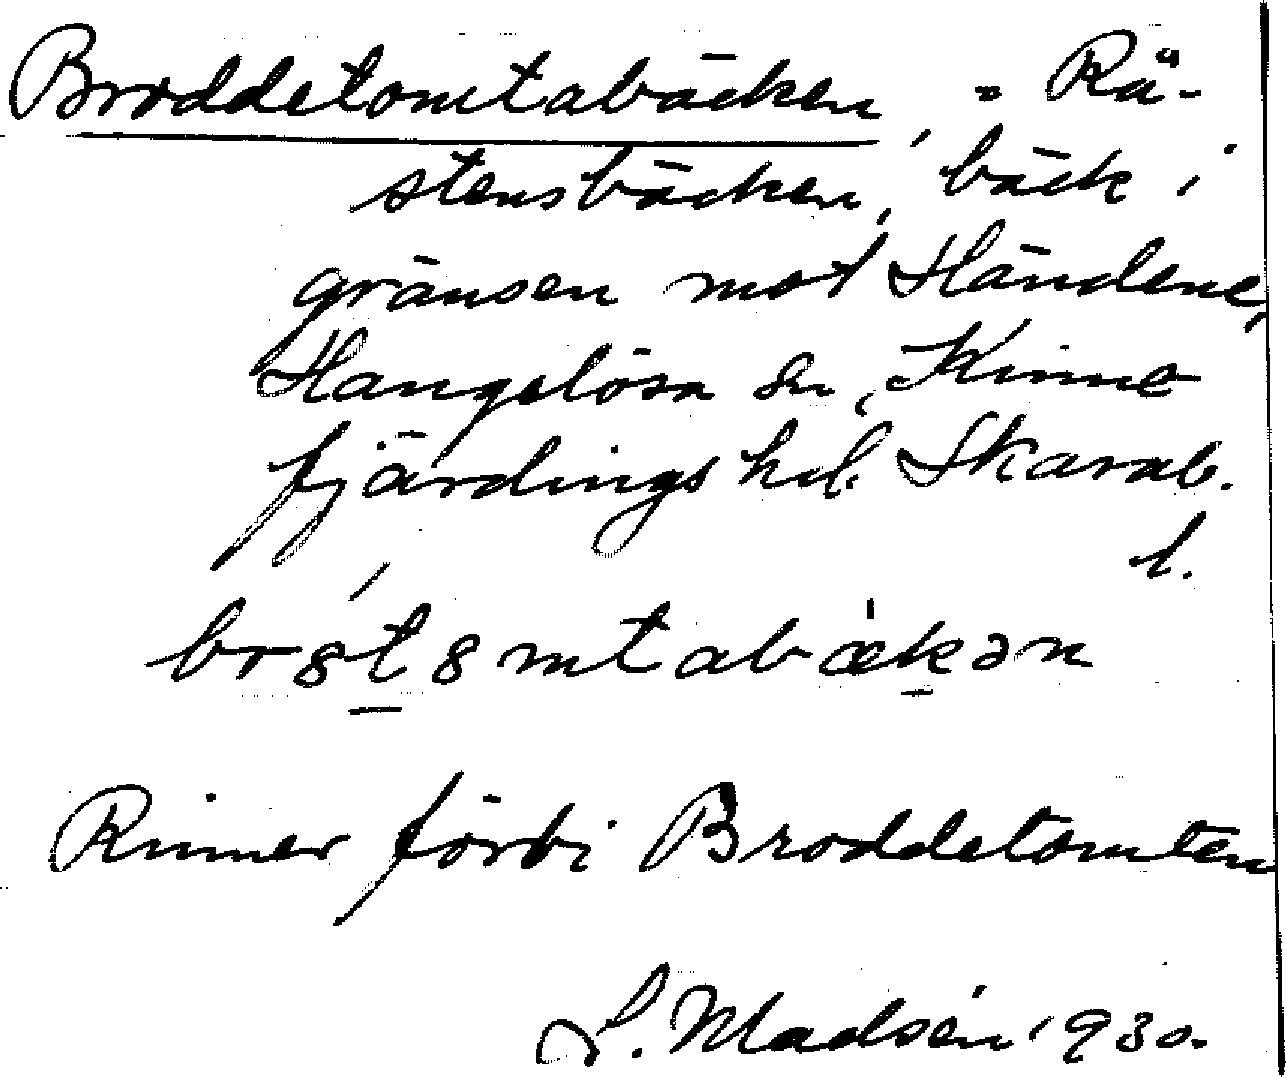 Broddetomtabäcken, = Rä-
stensbäcken, bäck i
gränsen mot Händene,
Hangelösa sn, Kinne
fjärdings hd. Skarab.
l.
br8t8mtabækən
Rinner förbi Broddetomten
S. Madsén 1930.